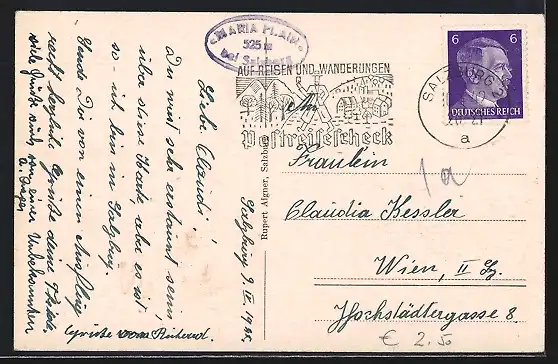 MARIA PLAIN
525 m
bei Salzburg
AUF REISEN UND WANDERUNGEN
Postreisescheck
6 6
DEUTSCHES REICH
SALZBURG 2
a
An
Fräulein
Claudia Kessler
Wien, II
Hochstädtergasse 8
1a
€ 2.50
Rupert Aigner, Salzburg
Salzburg, 9. IV.
Liebe Claudi!
Du wirst sehr erstaunt sein,
über diese Karte, aber es ist
so - ich bin in Salzburg.
Sende Dir von einem Ausflug
recht herzliche Grüße deine
viele Grüße auch von einer Unbekannten
Grüße vom